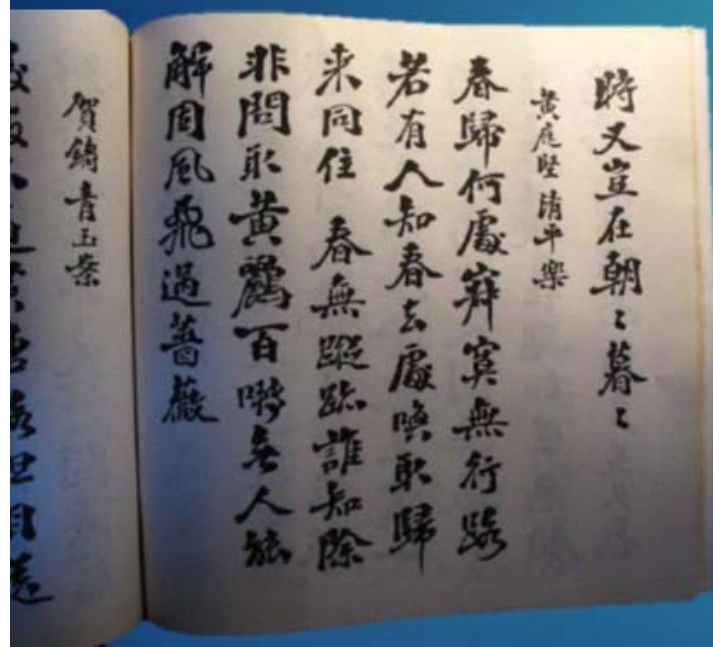 時又豈在朝〻暮〻
黄庭堅 清平樂
春歸何處寂寞無行路
若有人知春去處喚取歸
来同住 春無蹤跡誰知除
非問取黄鸝百囀無人能
解因風飛過薔薇
賀鑄青玉案
目送